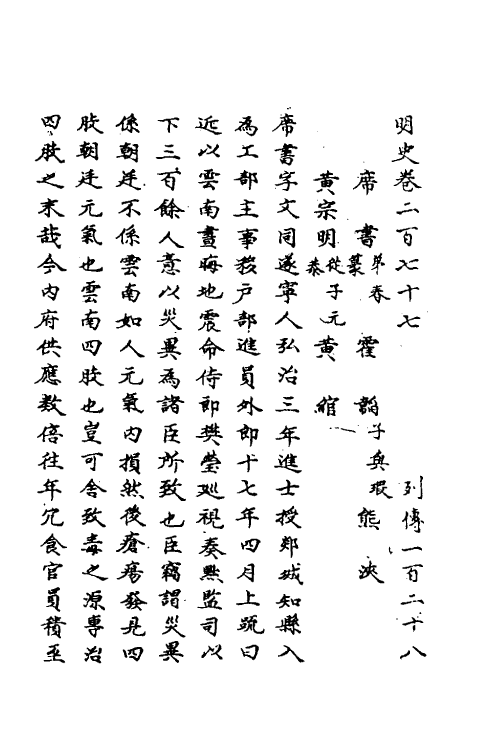 明史卷二百七十七　列傳一百二十八
席　書弟春　篆　霍　韜子與瑕　熊　浹
黃宗明從子元　泰　黃　綰
席書字文同遂寧人弘治三年進士授郯城知縣入
為工部主事移户部進員外郎十七年四月上疏曰
近以雲南晝晦地震命侍郎樊瑩巡視奏黜監司以
下三百餘人意以災異為諸臣所致也臣竊謂災異
係朝廷不係雲南如人元氣內損然後瘡瘍發見四
肢朝廷元氣也雲南四肢也豈可舍致毒之源專治
四肢之末哉今內府供應數倍往年冗食官員積至